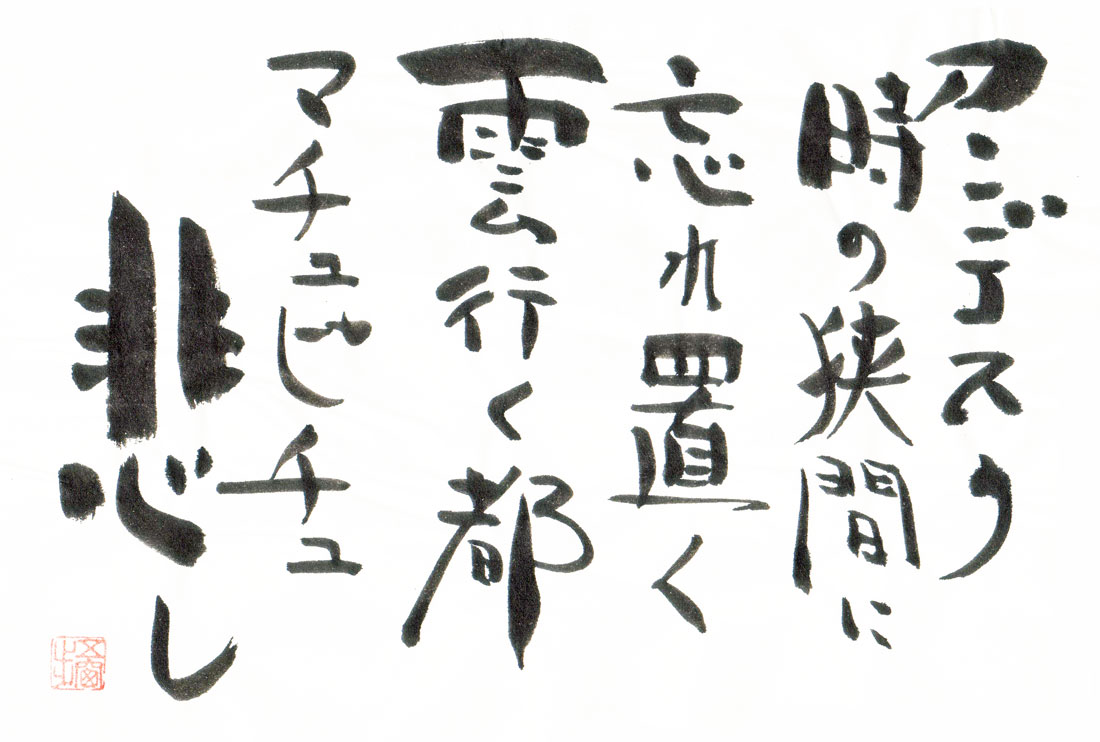 アンデスの
時の狭間に
忘れ置く
雲行く都
マチュピチュ
悲し